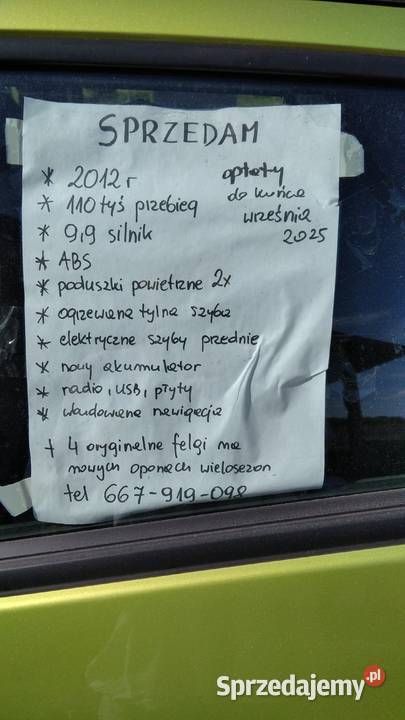 SPRZEDAM
* 2012 r
* 110 tyś przebieg
* 9,9 silnik
opłaty
do końca
września
2025
* ABS
* poduszki powietrzne 2x
* ogrzewana tylna szyba
* elektryczne szyby przednie
* nowy akumulator
* radio, USB, płyty
* wbudowana nawigacja
+ 4 oryginalne felgi na
nowych oponach wielosezon
tel 667-919-098
Sprzedajemy.pl